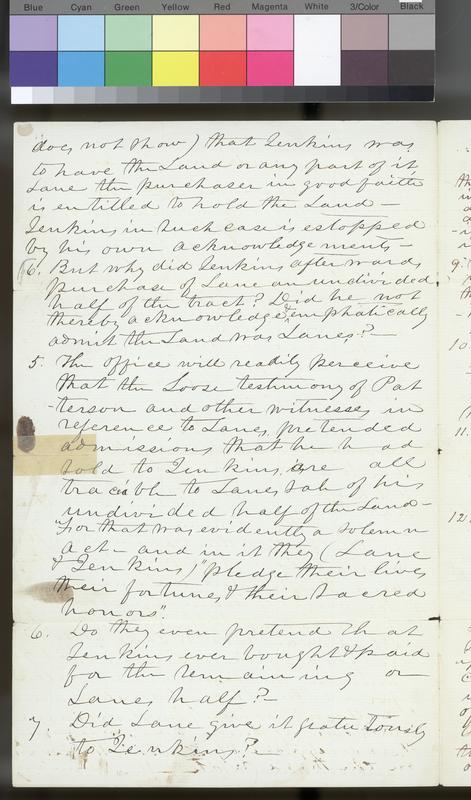 Blue Cyan Green Yellow Red Magenta White 3/Color Black
does not show) that Jenkins was
to have the Land or any part of it
Lane the purchaser in good faith
is entitled to hold the Land—
Jenkins in such case is estopped
by his own acknowledgements—
6. But why did Jenkins afterwards
purchase of Lane an undivided
half of the tract? Did he not
thereby acknowledge & emphatically
admit the Land was Lanes?—
5. The office will readily perceive
that the Loose testimony of Pat
-terson and other witnesses in
reference to Lanes, pretended
admissions that he had
sold to Jenkins, are all
tracable to Lanes sale of his
undivided half of the Land—
"For that was evidently a solemn
act— and in it they (Lane
& Jenkins) "pledge their lives
their fortunes & their sacred
honors".
6. Do they even pretend that
Jenkins ever bought & paid
for the remaining or
Lanes half?—
7 Did Lane give it gratuitously
to Jenkins?—
9.
10.
11.
12.